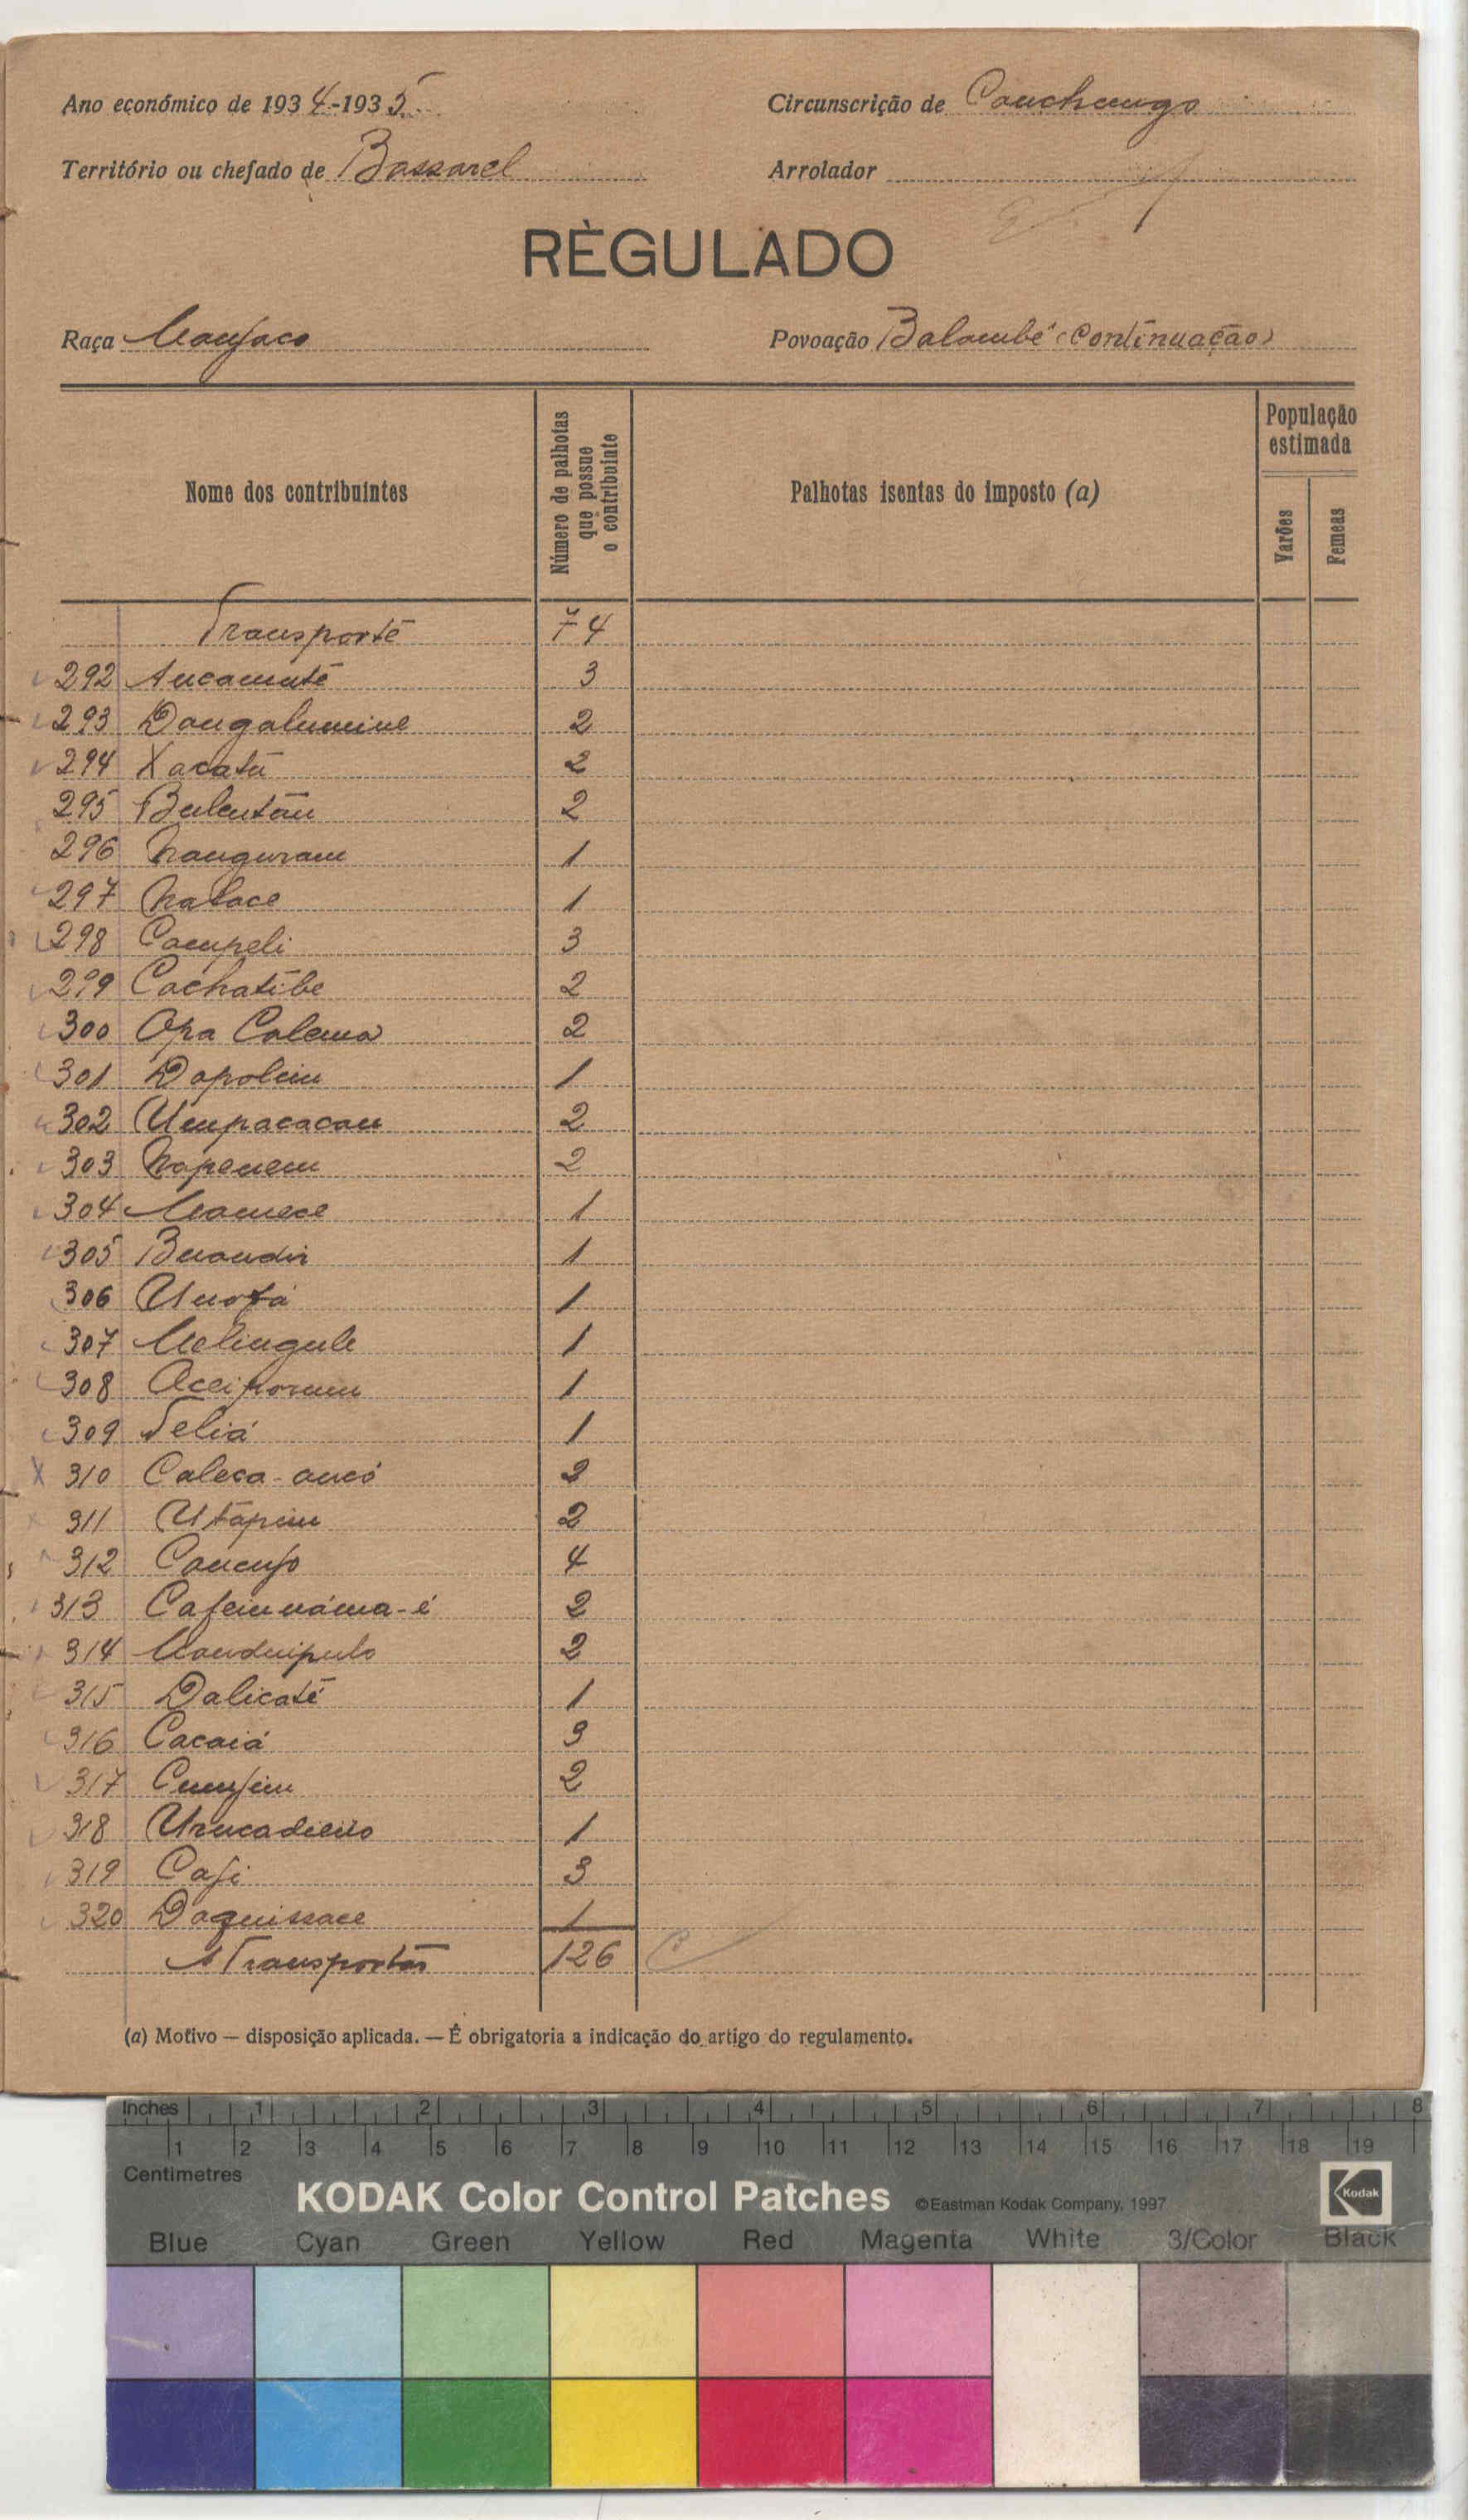 Ano económico de 1934-1935
Circunscrição de Canchungo
Território ou chefado de Bassarel
Arrolador
RÈGULADO
Raça Manjaco
Povoação Balombé (Continuação)
Nome dos contribuintes
Número de palhotas que possue o contribuinte
Palhotas isentas do imposto (a)
População estimada
Varões
Femeas
Transporte 74
292 Ancamute 3
293 Dangalumine 2
294 Xacatú 2
295 Bulentam 2
296 Nanguram 1
297 Natace 1
298 Campeli 3
299 Cachatibe 2
300 Opa Calema 2
301 Dapolim 1
302 Umpacacan 2
303 Napenem 2
304 Mamece 1
305 Buandin 1
306 Unotá 1
307 Melingule 1
308 1
309 Feliá 1
310 Caleca-ancó 2
311 Utapim 2
312 4
313 2
314 2
315 Dalicaté 1
316 Cacaiá 3
317 2
318 1
319 Cafi 3
320 Daquissace 1
126
(a) Motivo — disposição aplicada. — Ê obrigatoria a indicação do artigo do regulamento.
Inches 1 2 3 4 5 6 7 8
1 2 3 4 5 6 7 8 9 10 11 12 13 14 15 16 17 18 19
Centimetres
KODAK Color Control Patches ©Eastman Kodak Company, 1997 Kodak
Blue Cyan Green Yellow Red Magenta White 3/Color Black